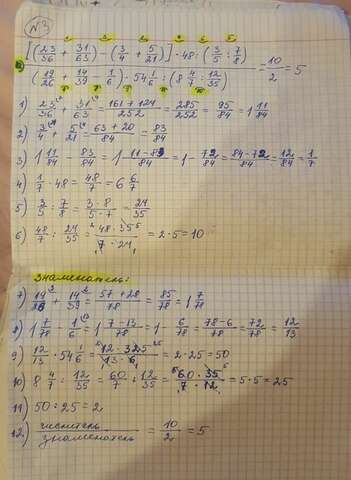 N 3
[(23/36 + 31/63) - (3/4 + 5/21)] · 48 : (3/5 : 7/8)
(19/26 + 14/39 - 1/6) · 54 1/6 : (8 4/7 : 12/35) = 10/2 = 5
1) 23/36 + 31/63 = 161 + 124/252 = 285/252 = 95/84 = 1 11/84
2) 3/4 + 5/21 = 63 + 20/84 = 83/84
3) 1 11/84 - 83/84 = 1 11 - 83/84 = 1 - 72/84 = 84 - 72/84 = 12/84 = 1/7
4) 1/7 · 48 = 48/7 = 6 6/7
5) 3/5 : 7/8 = 3 · 8/5 · 7 = 24/35
6) 48/7 : 24/35 = 48 · 35/7 · 24 = 2 · 5 = 10
Знаменатель:
7) 19/26 + 14/39 = 57 + 28/78 = 85/78 = 1 7/78
8) 1 7/78 - 1/6 = 1 7 - 13/78 = 1 - 6/78 = 78 - 6/78 = 72/78 = 12/13
9) 12/13 · 54 1/6 = 12 · 325/13 · 6 = 2 · 25 = 50
10) 8 4/7 : 12/35 = 60/7 : 12/35 = 60 · 35/7 · 12 = 5 · 5 = 25
11) 50 : 25 = 2
12) числитель/знаменатель = 10/2 = 5